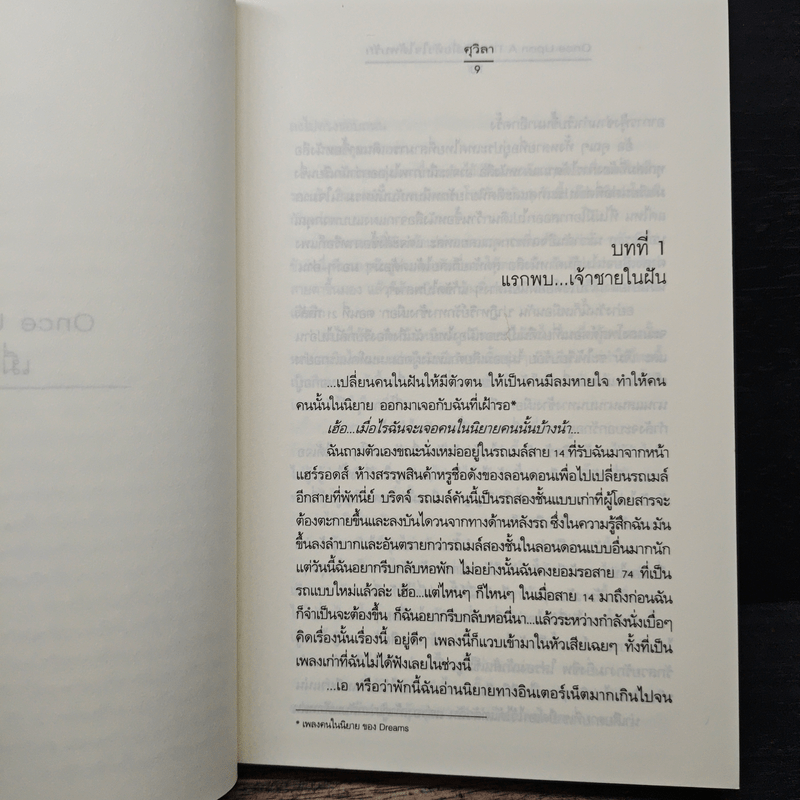 ศุวิลา
9
บทที่ 1
แรกพบ...เจ้าชายในฝัน
...เปลี่ยนคนในฝันให้มีตัวตน ให้เป็นคนมีลมหายใจ ทำให้คน
คนนั้นในนิยาย ออกมาเจอกับฉันที่เฝ้ารอ*
เฮ้อ...เมื่อไรฉันจะเจอคนในนิยายคนนั้นบ้างน้า...
ฉันถามตัวเองขณะนั่งเหม่ออยู่ในรถเมล์สาย 14 ที่รับฉันมาจากหน้า
แฮร์รอดส์ ห้างสรรพสินค้าหรูชื่อดังของลอนดอนเพื่อไปเปลี่ยนรถเมล์
อีกสายที่พัทนี่ย์ บริดจ์ รถเมล์คันนี้เป็นรถสองชั้นแบบเก่าที่ผู้โดยสารจะ
ต้องตะกายขึ้นและลงบันไดวนจากทางด้านหลังรถ ซึ่งในความรู้สึกฉัน มัน
ขึ้นลงลำบากและอันตรายกว่ารถเมล์สองชั้นในลอนดอนแบบอื่นมากนัก
แต่วันนี้ฉันอยากรีบกลับหอพัก ไม่อย่างนั้นฉันคงยอมรอสาย 74 ที่เป็น
รถแบบใหม่แล้วล่ะ เฮ้อ...แต่ไหนๆ ก็ไหนๆ ในเมื่อสาย 14 มาถึงก่อนฉัน
ก็จำเป็นจะต้องขึ้น ก็ฉันอยากรีบกลับหอนี่นา...แล้วระหว่างกำลังนั่งเบื่อๆ
คิดเรื่องนั้นเรื่องนี้ อยู่ดีๆ เพลงนี้ก็แวบเข้ามาในหัวเสียเฉยๆ ทั้งที่เป็น
เพลงเก่าที่ฉันไม่ได้ฟังเลยในช่วงนี้
...เอ หรือว่าพักนี้ฉันอ่านนิยายทางอินเตอร์เน็ตมากเกินไปจน
* เพลงคนในนิยาย ของ Dreams